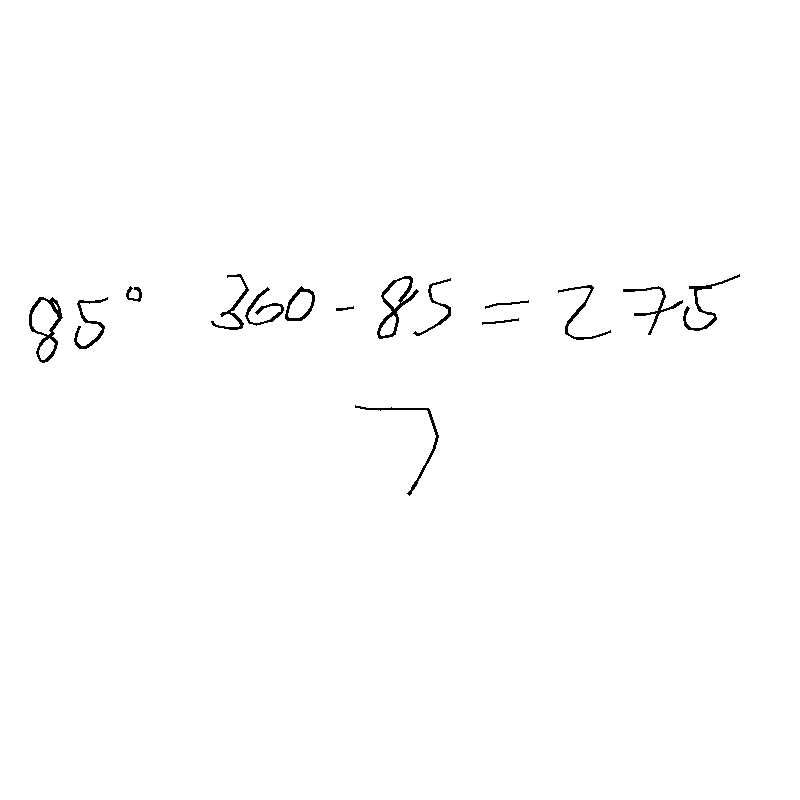 85° 360 - 85 = 275
7